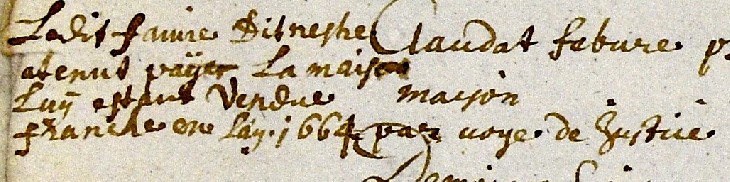 Ledit faivre Claudat febure
atenut payer La maison
Luy estant Vendue maison
franche en Lan 1664 par voye de Justice